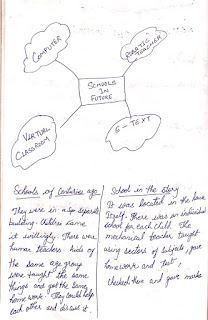 COMPUTER
ROBOTIC
TEACHER
SCHOOLS
IN
FUTURE
VIRTUAL
CLASSROOM
E-TEXT
Schools of Centuries ago
They were in a separate
building. Children came
it willingly. There were
human teachers. kids of
the same age group
were taught the same
things and got the same
home work. They could help
each other and discuss it.
School in the Story
It was located in the house
itself. There was individual
school for each child. The
mechanical teacher taught
using sectors of subjects, gave
home work and test
checked them and gave marks